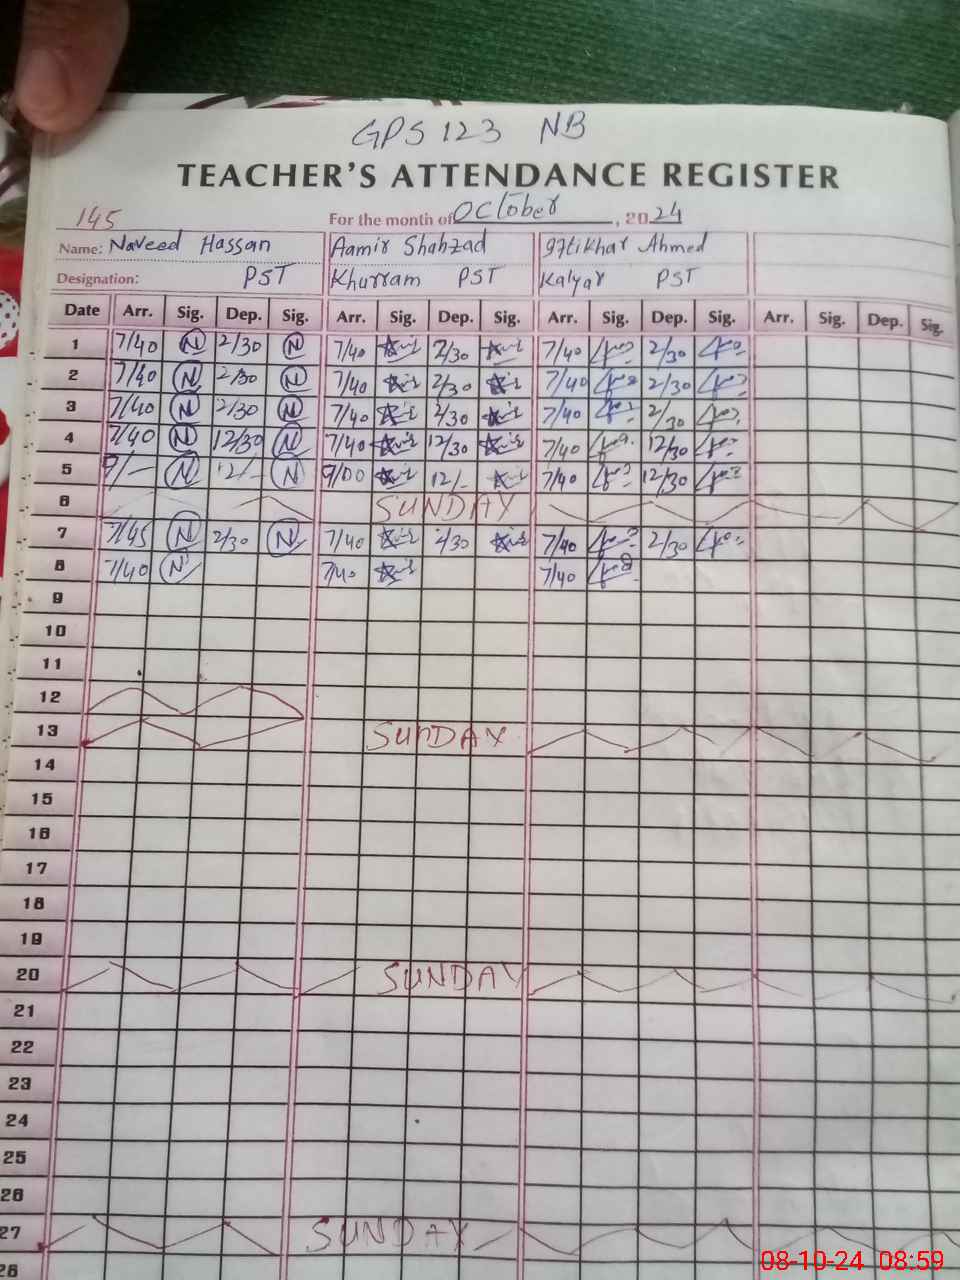 GPS 123 NB
TEACHER'S ATTENDANCE REGISTER
145 For the month of October, 2024
Name: Naveed Hassan Aamir Shahzad Iftikhar Ahmed
Designation: PST Khurram PST Kalyar PST
Date Arr. Sig. Dep. Sig. Arr. Sig. Dep. Sig. Arr. Sig. Dep. Sig. Arr. Sig. Dep. Sig.
1 7/40 N 2/30 N 7/40 2/30 7/40 2/30
2 7/40 N 2/30 N 7/40 2/30 7/40 2/30
3 7/40 N 2/30 N 7/40 2/30 7/40 2/30
4 7/40 N 12/30 N 7/40 12/30 7/40 12/30
5 9/- N 12/- N 9/00 12/- 7/40 12/30
6 SUNDAY
7 7/45 N 2/30 N 7/40 2/30 7/40 2/30
8 7/40 N 7/40 7/40
9
10
11
12
13 SUNDAY
14
15
16
17
18
19
20 SUNDAY
21
22
23
24
25
26
27 SUNDAY
28
08-10-24 08:59